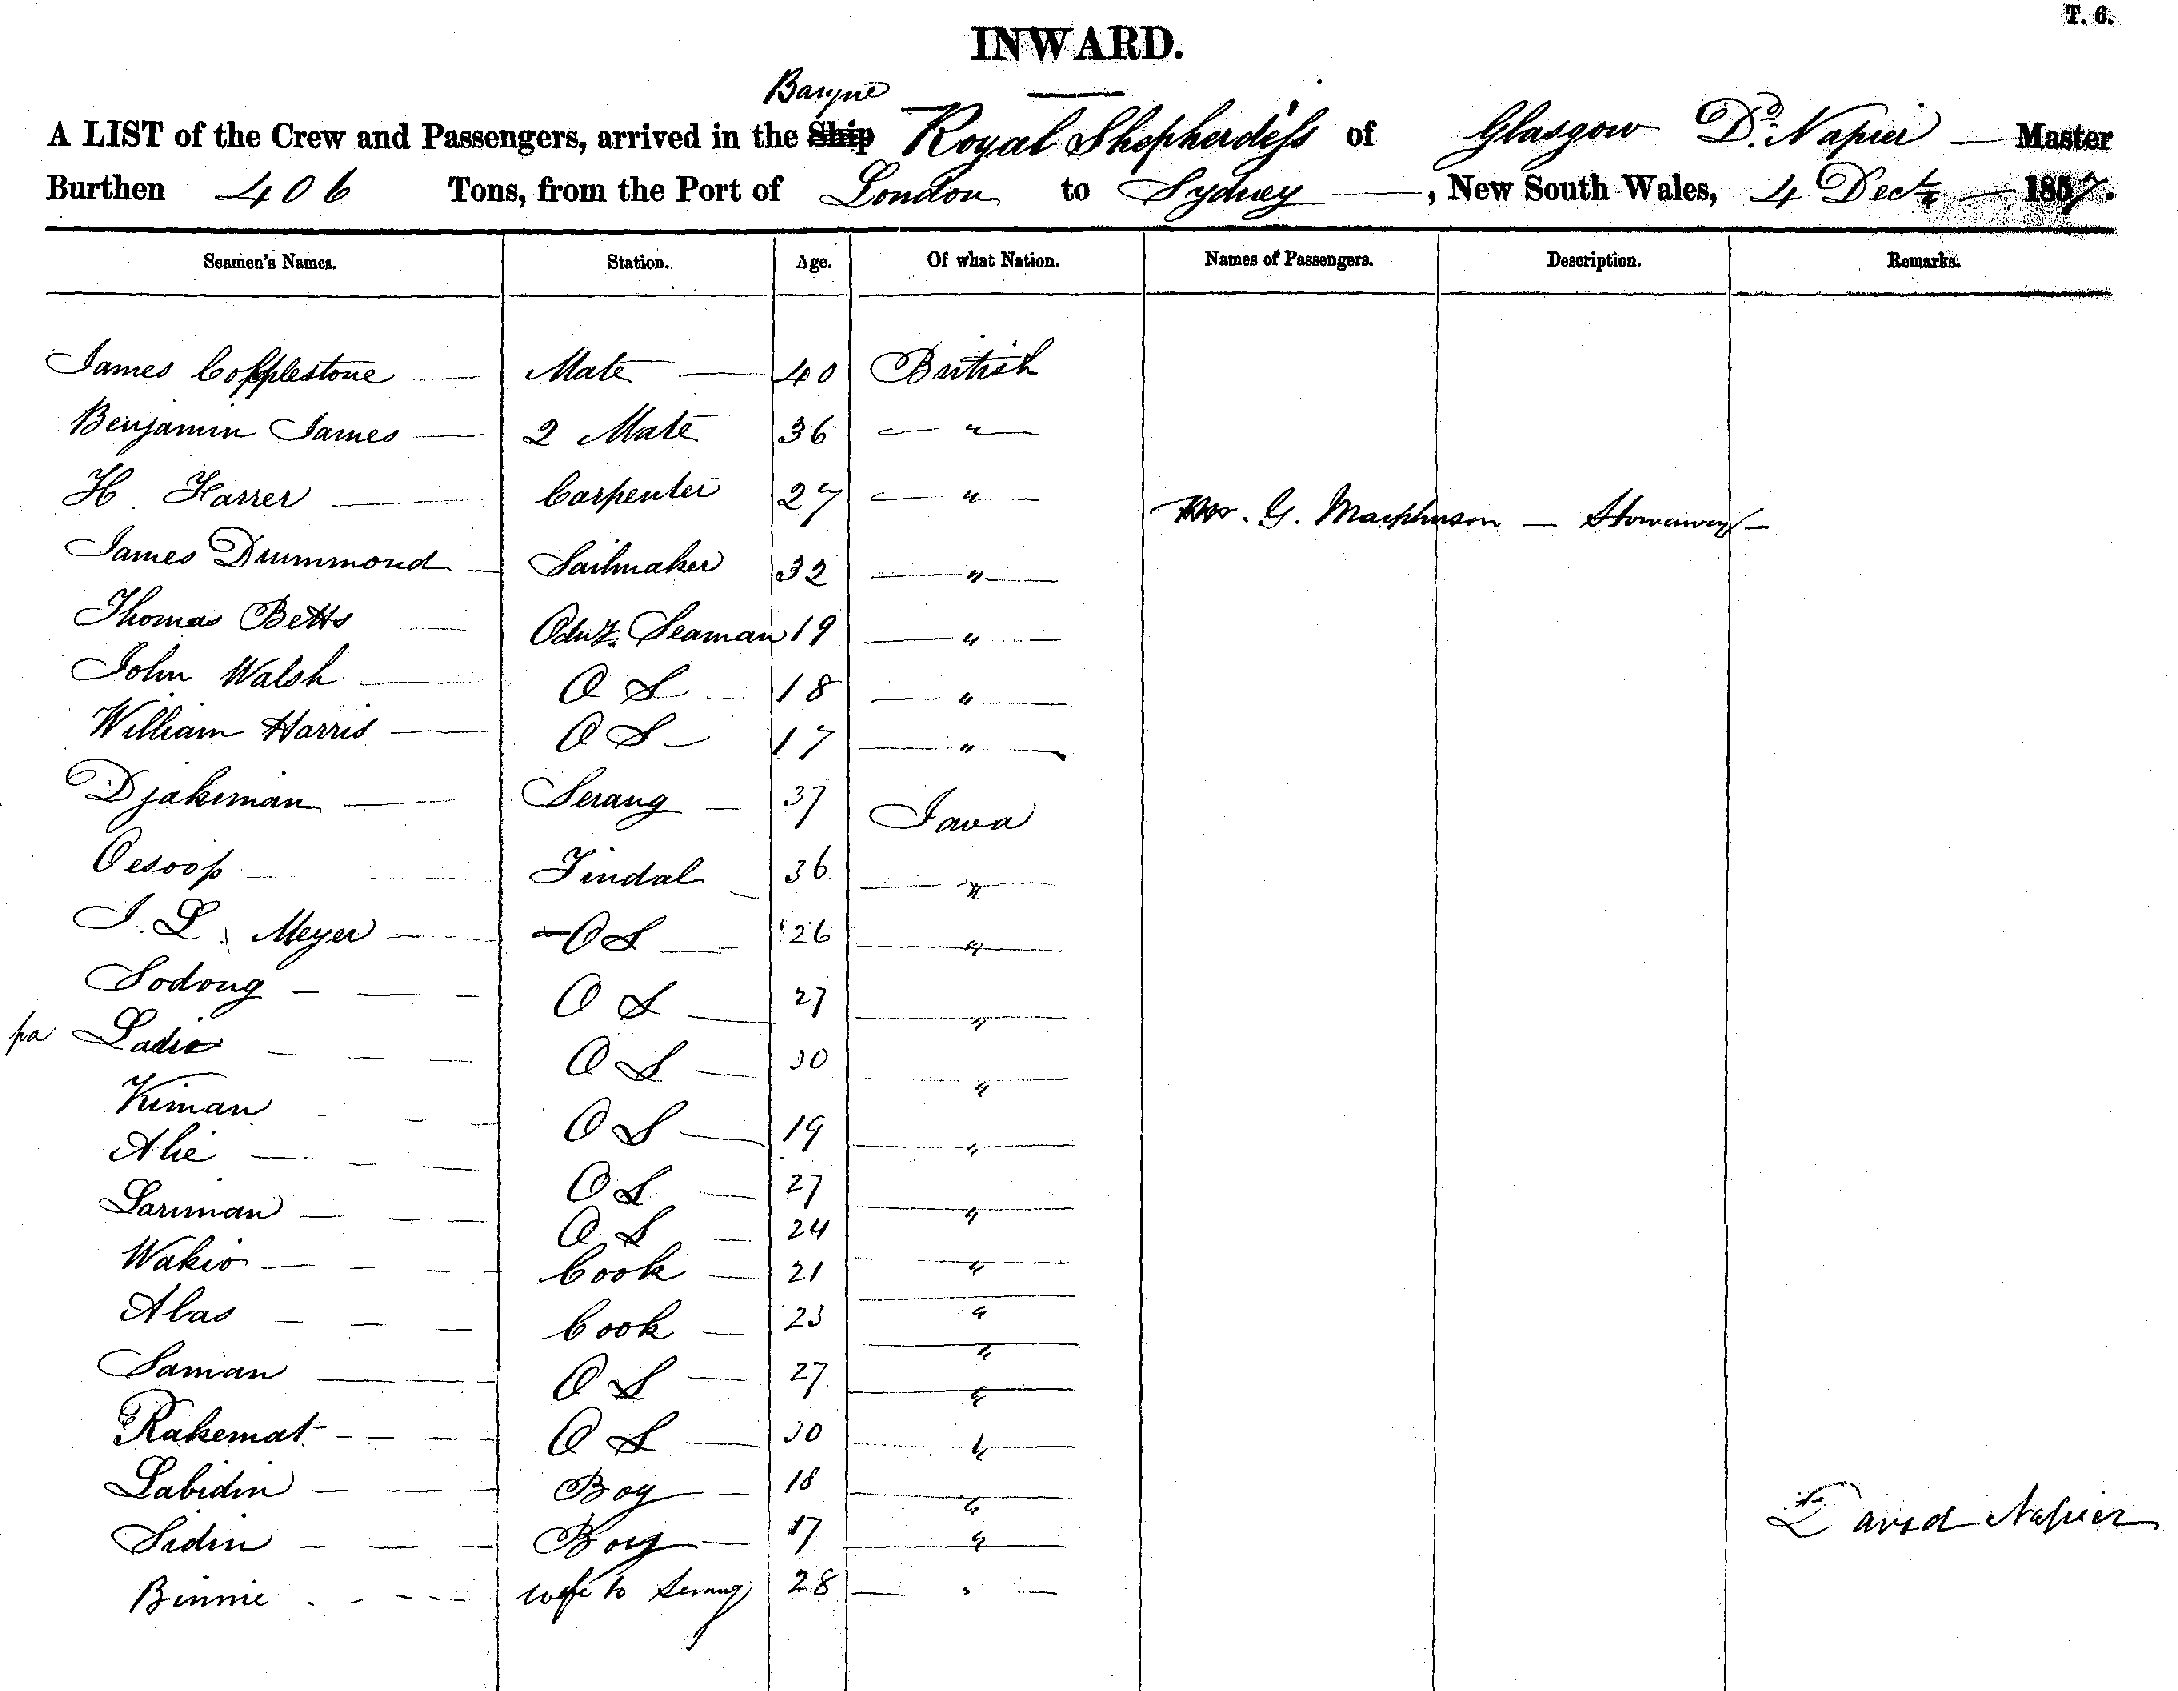 T. 6.
INWARD.
Barque
A LIST of the Crew and Passengers, arrived in the Ship Royal Shepherdess of Glasgow Do. Napier — Master
Burthen 406 Tons, from the Port of London to Sydney —, New South Wales, 4 Decr — 1857.
Seamen's Names. Station. Age. Of what Nation. Names of Passengers. Description. Remarks.
James Copplestone — Mate — 40 British
Benjamin James — 2 Mate 36 — " —
H. Harrer — Carpenter 27 — " —
G. Macpherson — Stowaway —
James Drummond — Sailmaker 32 — " —
Thomas Betts — Seaman 19 — " —
John Walsh — O S — 18 — " —
William Harris — O S — 17 — " —
Djakiman — Serang — 37 Java
Oesoop — Tindal — 36 — " —
J. L. Meyer — O S — 26 — " —
Sodong — O S — 27 — " —
pa Ladio — O S — 30 — " —
Kiman — O S — 19 — " —
Alie — O S — 27 — " —
Sariman — O S — 24 — " —
Wakio — Cook — 21 — " —
Abas — Cook — 23 — " —
Saman — O S — 27 — " —
Rakemat — O S — 30 — " —
Labidin — Boy — 18 — " —
Sidin — Boy — 17 — " —
David Napier
Binnie — wife to Serang 28 — " —